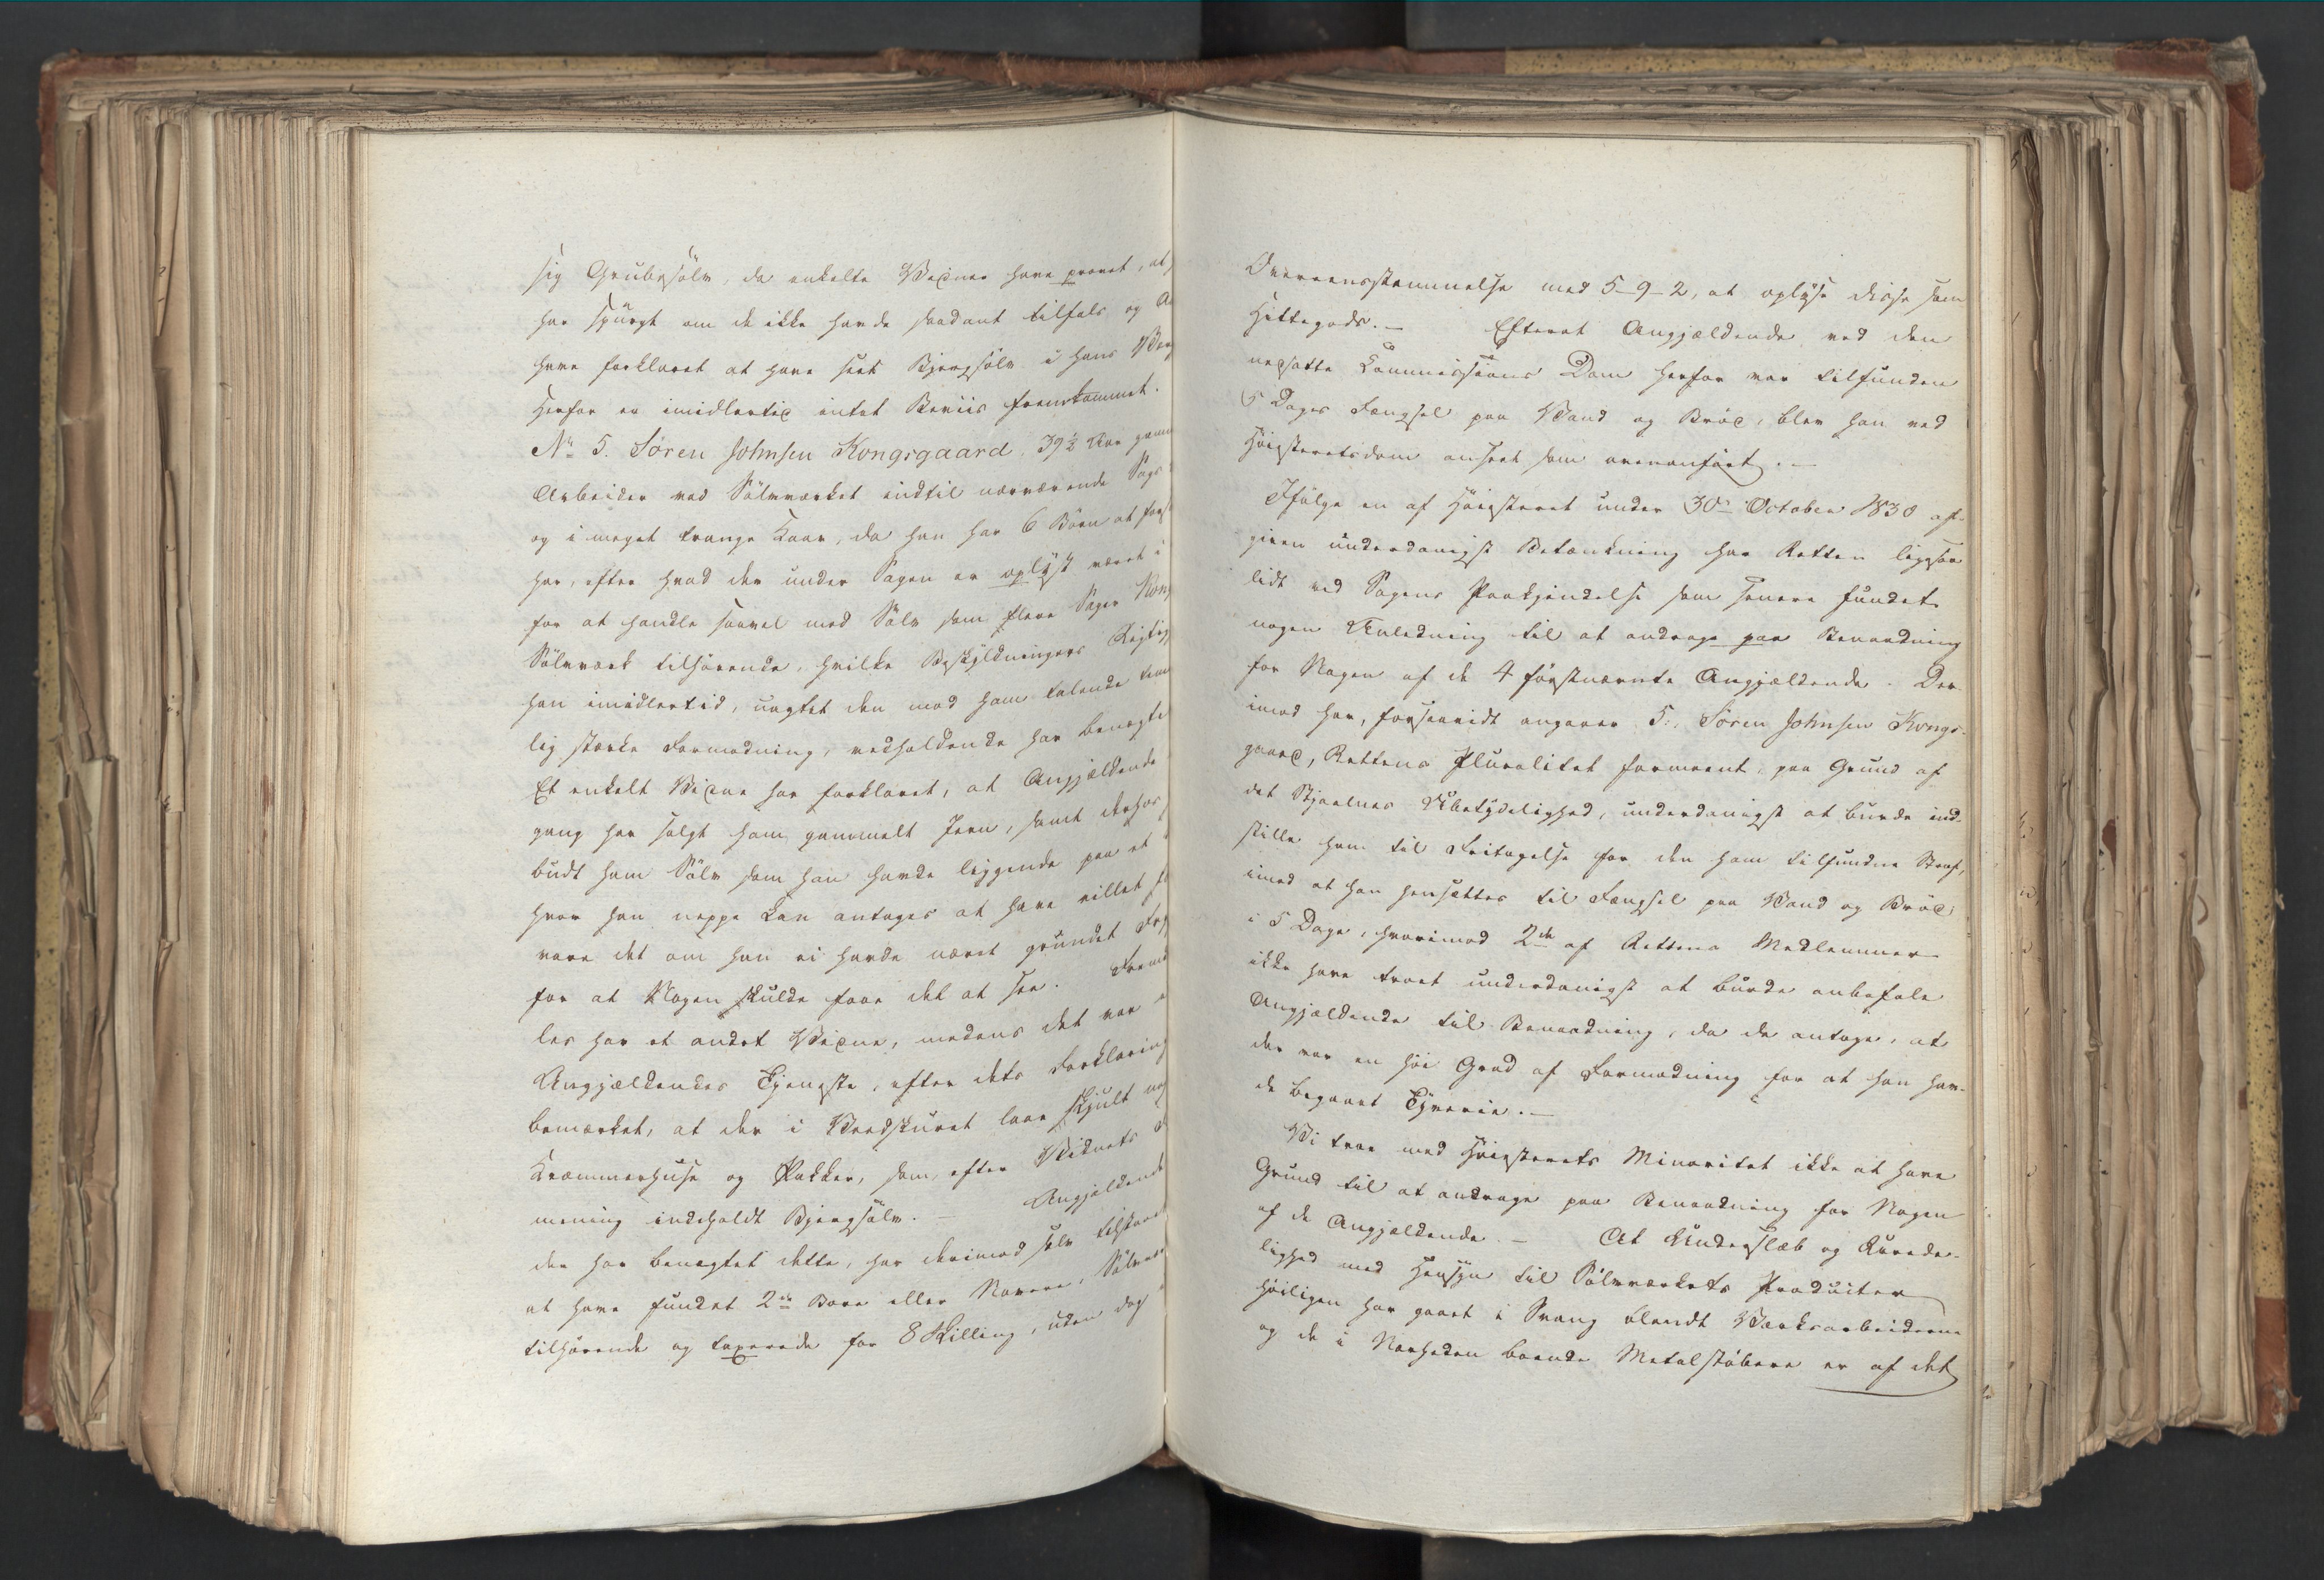 sig Grubesølv, da enkelte Vidner have provet, at
har spurgt om de ikke havde saadant tilfals og
have forklaret at have seet Bjergsølv i hans
Herfor er imidlertid intet Beviis fremkommet.
No 5. Søren Johnsen Kongsgaard, 39½ Aar
Arbeider ved Sølvværket indtil nærværende Sags
og i meget trange Kaar, da han har 6 Børn at
har, efter hvad der under Sagen er oplyst været i
for at handle saavel med Sølv som flere Sager
Sølvværk tilhørende, hvilke Beskyldningers
han imidlertid, uagtet den mod ham talende
lig stærke Formodning, vedholdende har
Et enkelt Vidne har forklaret, at Angjældende
gang har solgt ham gammelt Jern, samt derhos
budt ham Sølv som han havde liggende paa et
hvor han neppe kan antages at have villet
vare det om han ei havde næret grundet
for at Nogen skulde faae det at see.
les har et andet Vidne, medens det var
Angjældendes Tjeneste, efter dets Forklaring
bemærket, at der i Vedskuret laae skjult
Kræmmerhuse og Pakker, som, efter Vidnets
mening indeholdt Bjergsølv. – Angjældende
der har benægtet dette, har derimod selv
at have fundet 2de Bore eller Navere,
tilhørende og taxerede for 8 Skilling, uden dog
Overeensstemmelse med 5-9-2, at oplyse disse som
Hittegods. – Efterat Angjældende ved den
nedsatte Commissions Dom herfor var tilfunden
5 Dages Fængsel paa Vand og Brød, blev han ved
Høiesteretsdom anseet som ovenanført. –
Ifølge en af Høiesteret under 30te October 1830 af-
given underdanigst Betænkning har Retten ligesaa
lidt ved Sagens Paakjendelse som senere fundet
nogen Anledning til at andrage paa Benaadning
for Nogen af de 4 førstnævnte Angjældende. Der-
imod har, forsaavidt angaaer 5, Søren Johnsen Kongs-
gaard, Rettens Pluralitet formeent, paa Grund af
det Stjaalnes Ubetydelighed, underdanigst at burde ind-
stille ham til Fritagelse for den ham tilfundne Straf,
imod at han hensættes til Fængsel paa Vand og Brød
i 5 Dage, hvorimod 2de af Rettens Medlemmer
ikke have troet underdanigst at burde anbefale
Angjældende til Benaadning, da de antage, at
der var en høi Grad af Formodning for at han hav-
de begaaet Tyverie. –
Vi troe med Høiesterets Minoritet ikke at have
Grund til at andrage paa Benaadning for Nogen
af de Angjældende. – At Underslæb og Urede-
lighed med Hensyn til Sølvværkets Producter
har gaaet i Svang blandt Værksarbeiderne
og de i Nærheden boende Metalstøbere er af det